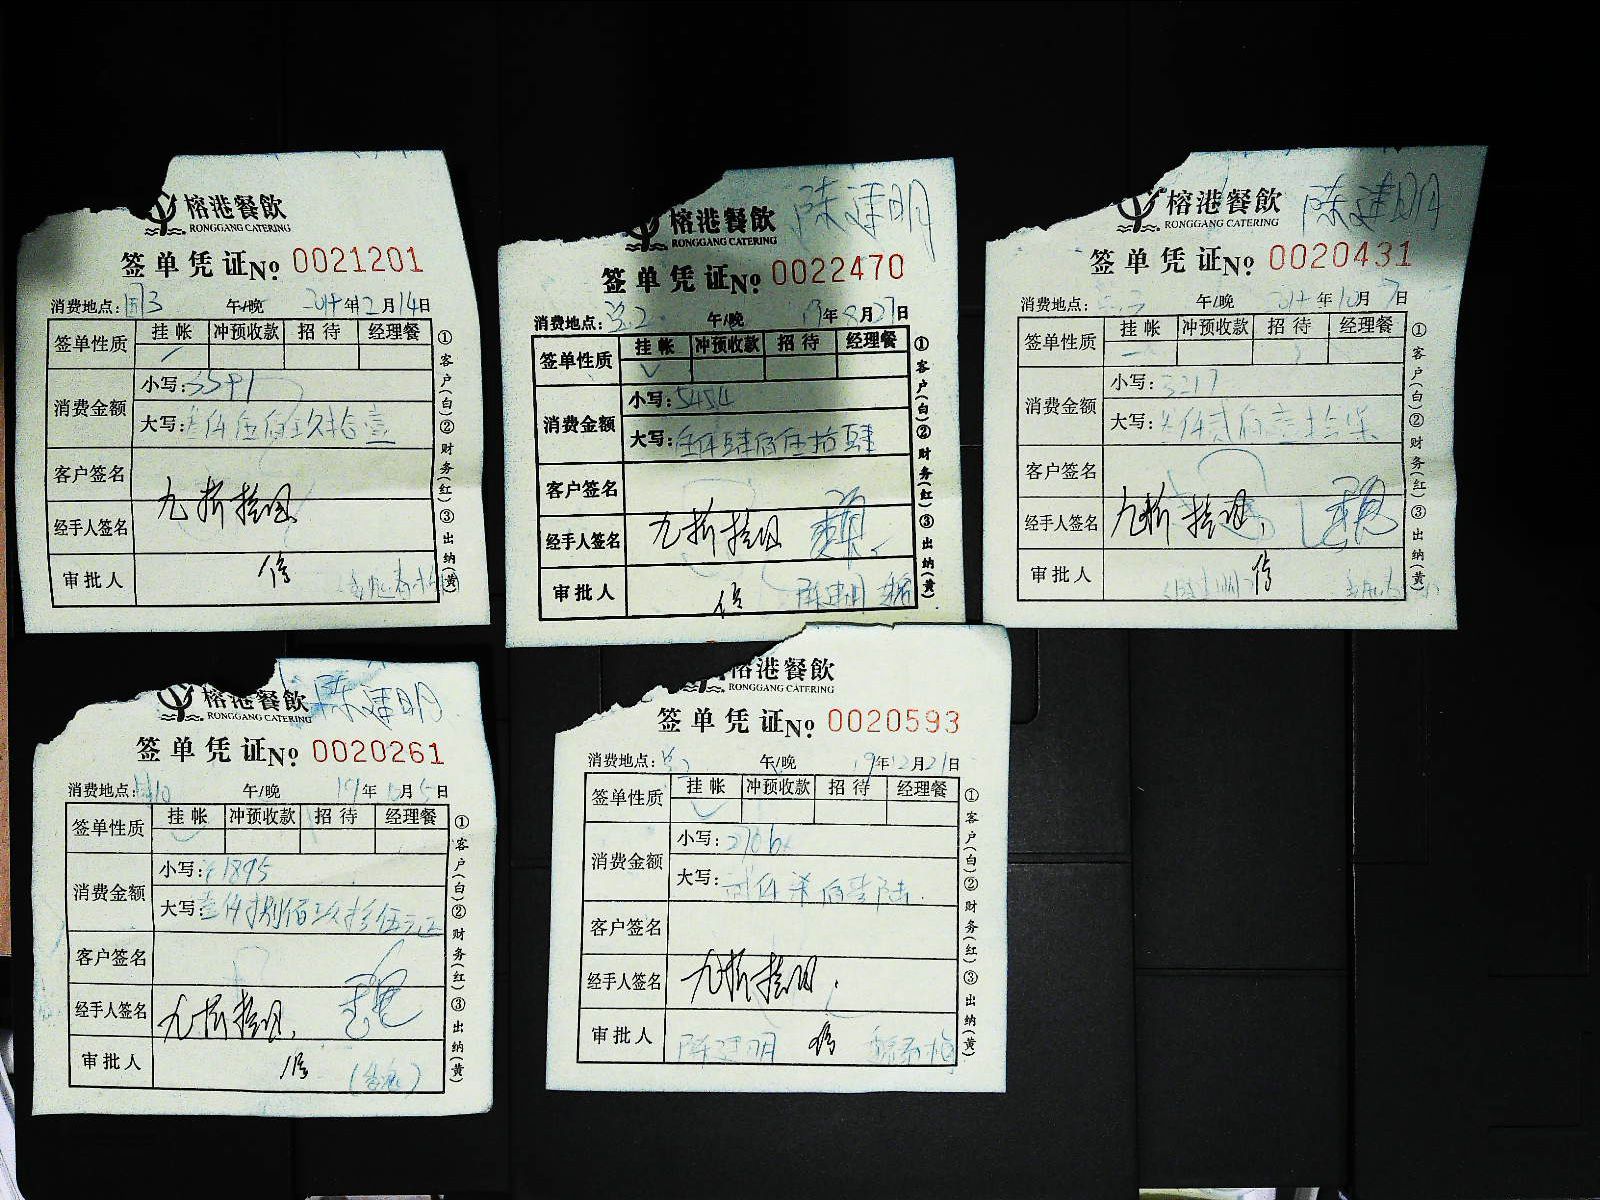 榕港餐飲
RONGGANG CATERING
签单凭证№ 0021201
消费地点: 午/晚 年12月14日
签单性质 挂帐 冲预收款 招待 经理餐
消费金额
小写:3591
大写:叁仟伍佰玖拾壹
客户签名
九折
经手人签名
审批人
①客户(白)②财务(红)③出纳(黄)
陈建明
榕港餐飲
RONGGANG CATERING
签单凭证№ 0022470
消费地点: 午/晚 年8月27日
签单性质 挂帐 冲预收款 招待 经理餐
消费金额
小写:5454
大写:伍仟肆佰伍拾肆
客户签名
九折
经手人签名
审批人 陈建明
①客户(白)②财务(红)③出纳(黄)
陈建明
榕港餐飲
RONGGANG CATERING
签单凭证№ 0020431
消费地点: 午/晚 年10月7日
签单性质 挂帐 冲预收款 招待 经理餐
消费金额
小写:3217
大写:叁仟贰佰壹拾柒
客户签名
九折
经手人签名
审批人
①客户(白)②财务(红)③出纳(黄)
陈建明
榕港餐飲
RONGGANG CATERING
签单凭证№ 0020261
消费地点: 午/晚 年 月5日
签单性质 挂帐 冲预收款 招待 经理餐
消费金额
小写:¥1895
大写:壹仟捌佰玖拾伍元正
客户签名
经手人签名 九折
审批人
①客户(白)②财务(红)③出纳(黄)
榕港餐飲
RONGGANG CATERING
签单凭证№ 0020593
消费地点: 午/晚 19年12月21日
签单性质 挂帐 冲预收款 招待 经理餐
消费金额
小写:2706
大写:贰仟柒佰零陆
客户签名
经手人签名 九折
审批人 陈建明
①客户(白)②财务(红)③出纳(黄)